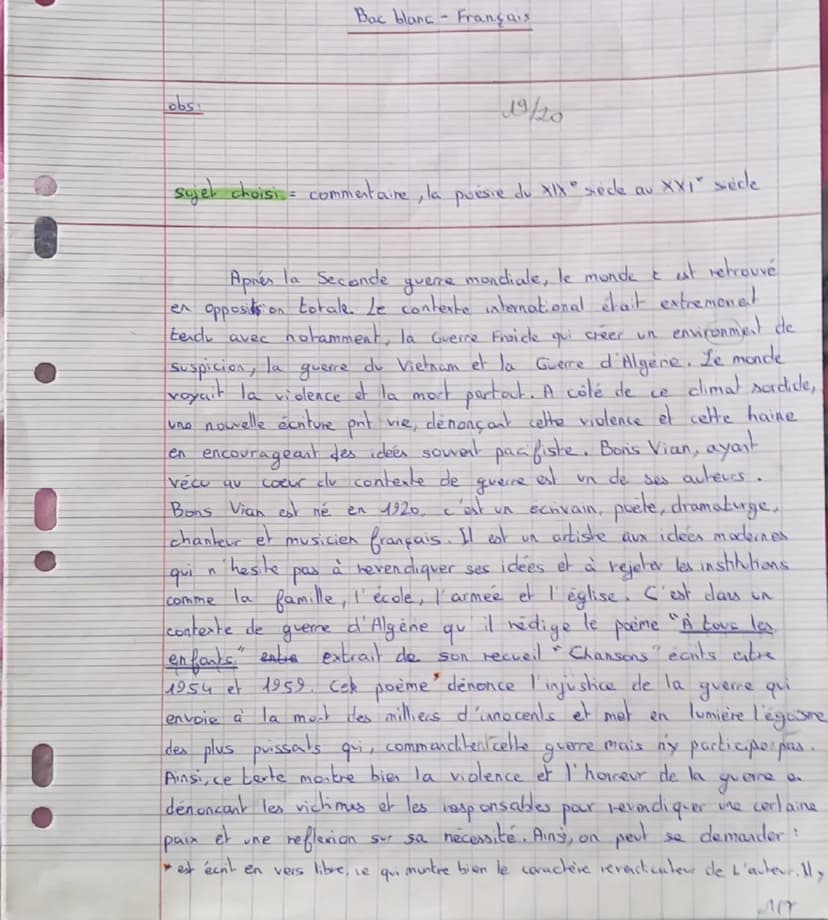 Bac blanc - Français
obs:
19/20
sujet choisi = commentaire, la poésie du XIXe siècle au XXIe siècle
Après la Seconde guerre mondiale, le monde s'est retrouvé
en opposition totale. Le contexte international était extremement
tendu avec notamment, la Guerre Froide qui créer un environment de
suspicion, la guerre du Vietnam et la Guerre d'Algérie. Le monde
voyait la violence et la mort partout. A côté de ce climat sordide,
une nouvelle écriture prit vie, dénonçant cette violence et cette haine
en encourageant des idées souvent pacifiste. Boris Vian, ayant
vécu au coeur du contexte de guerre est un de ses auteurs.
Boris Vian est né en 1920, c'est un écrivain, poète, dramaturge,
chanteur et musicien français. Il est un artiste aux idées modernes
qui n'hesite pas à revendiquer ses idées et à rejeter les institutions
comme la famille, l'école, l'armée et l'église. C'est dans un
contexte de guerre d'Algérie qu'il rédige le poème "À tous les
enfants" extrait de son recueil "Chansons" écrits entre
1954 et 1959. Cet poème* dénonce l'injustice de la guerre qui
envoie à la mort des milliers d'innocents et met en lumière l'égoisme
des plus puissants qui, commanditent cette guerre mais n'y participe pas.
Ainsi, ce texte montre bien la violence et l'horreur de la guerre en
dénoncant les victimes et les responsables pour revendiquer une certaine
paix et une reflexion sur sa nécessité. Ainsi, on peut se demander :
* est écrit en vers libre, ce qui montre bien le caractère revendicateur de l'auteur. Il,
1/7